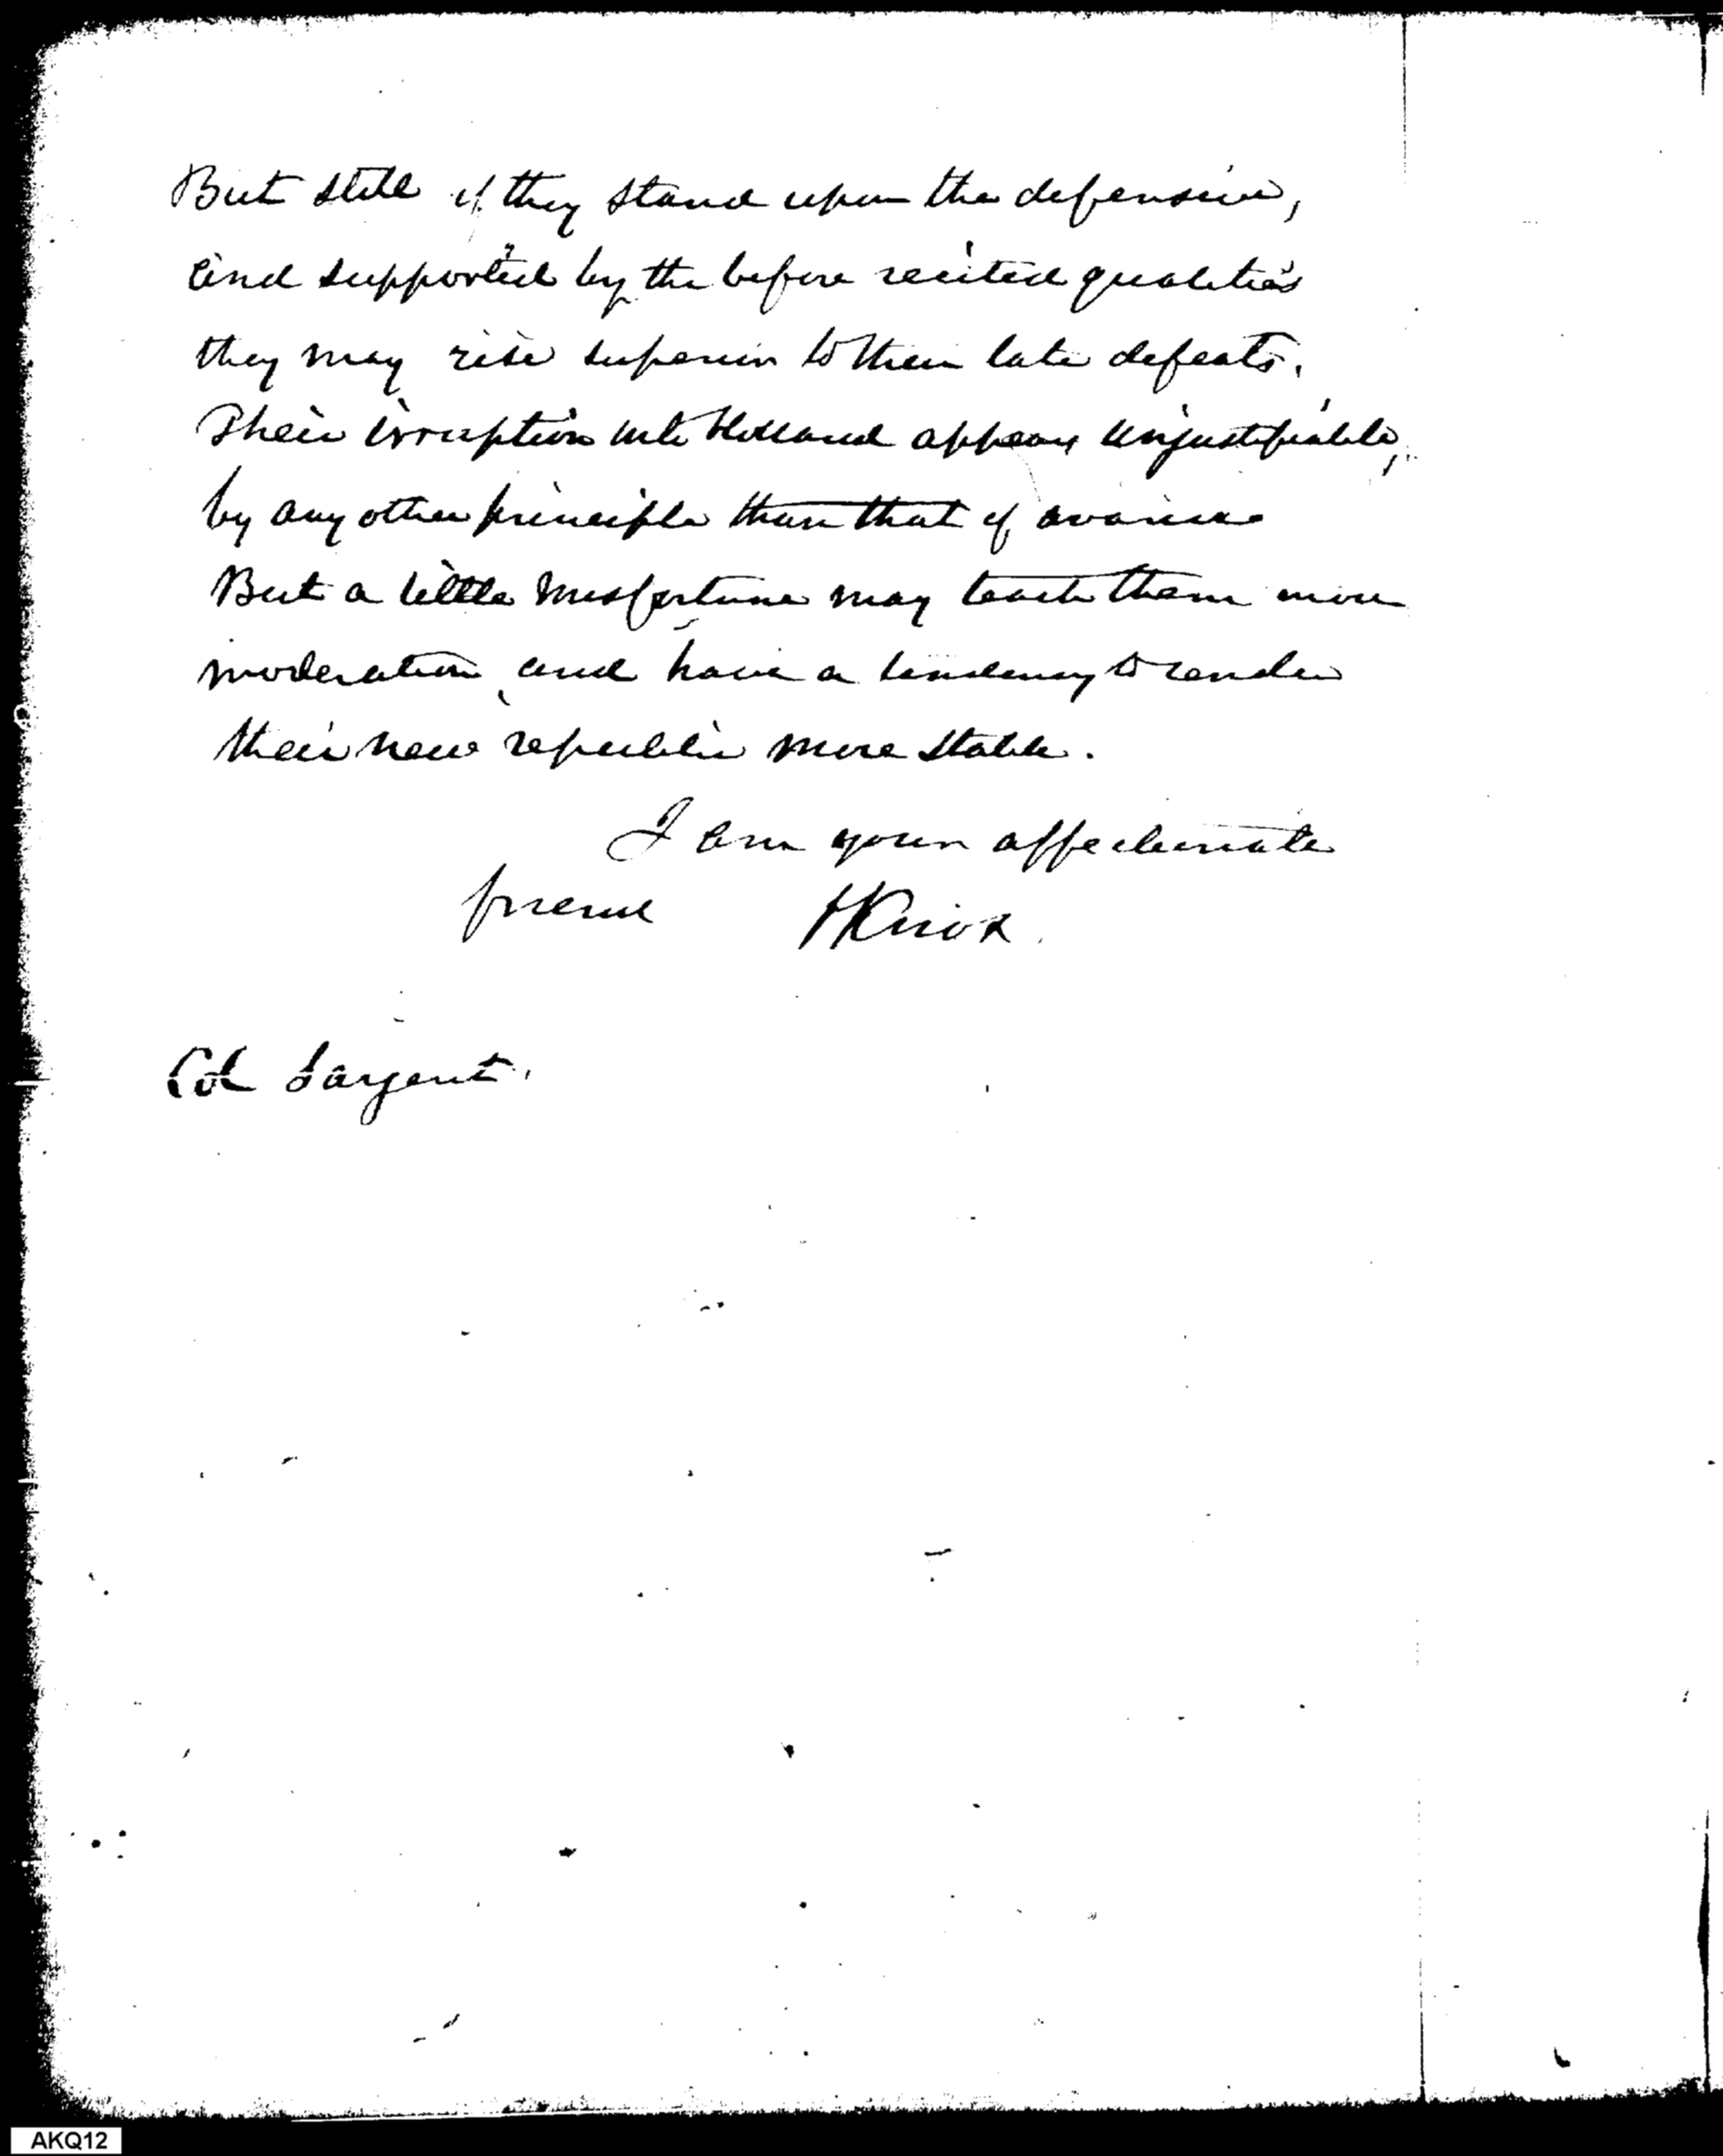 But still if they stand upon the defensive,
and supported by the before recited qualities
they may rise superior to their late defeats.
Their irruption into Holland appears unjustifiable,
by any other principle than that of avarice
But a little misfortune may teach them more
moderation, and have a tendency to render
their new republic more stable.
I am your affectionate
friend HKnox.
Col Sargent.
AKQ12